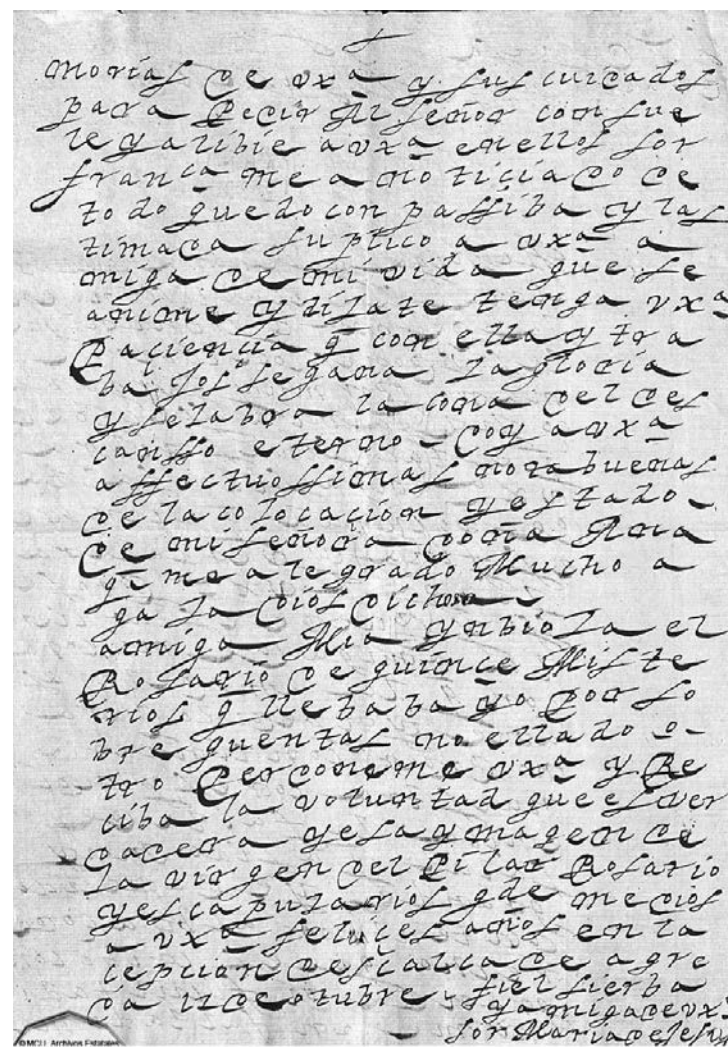 morias de vxa y sus cuidados
para pedir Al señor consue
le y alibie a vxa en ellos sor
franca me a noticiado de
todo quedo con passiba y las
timada suplico a vxa a
miga de mi vida que se
anime y dilate tenga vxa
Paciencia q con ella y tra
bajos se gana la gloria
y se labra la cona del des
cansso eterno - doy a vxa
affectuossimas norabuenas
de la colocacion y estado
de mi señora doña Ana
q me a legrado Mucho a
ga la dios dichosa
amiga Mia ynbiola el
Rosario de quince Miste
rios q llebaba yo Por so
bre quentas no ellado o-
tro Perdoneme vxa y Re
ciba la voluntad que es ver
dadera y esa ymagen de
la virgen del Pilar Rosario
y escapularios gde me dios
a vxa felices años en la
cepcion descalca de agre
da 12 de otubre - fiel sierba
y amiga de vxa
sor Maria de Jesus
MCU. Archivos Estatales